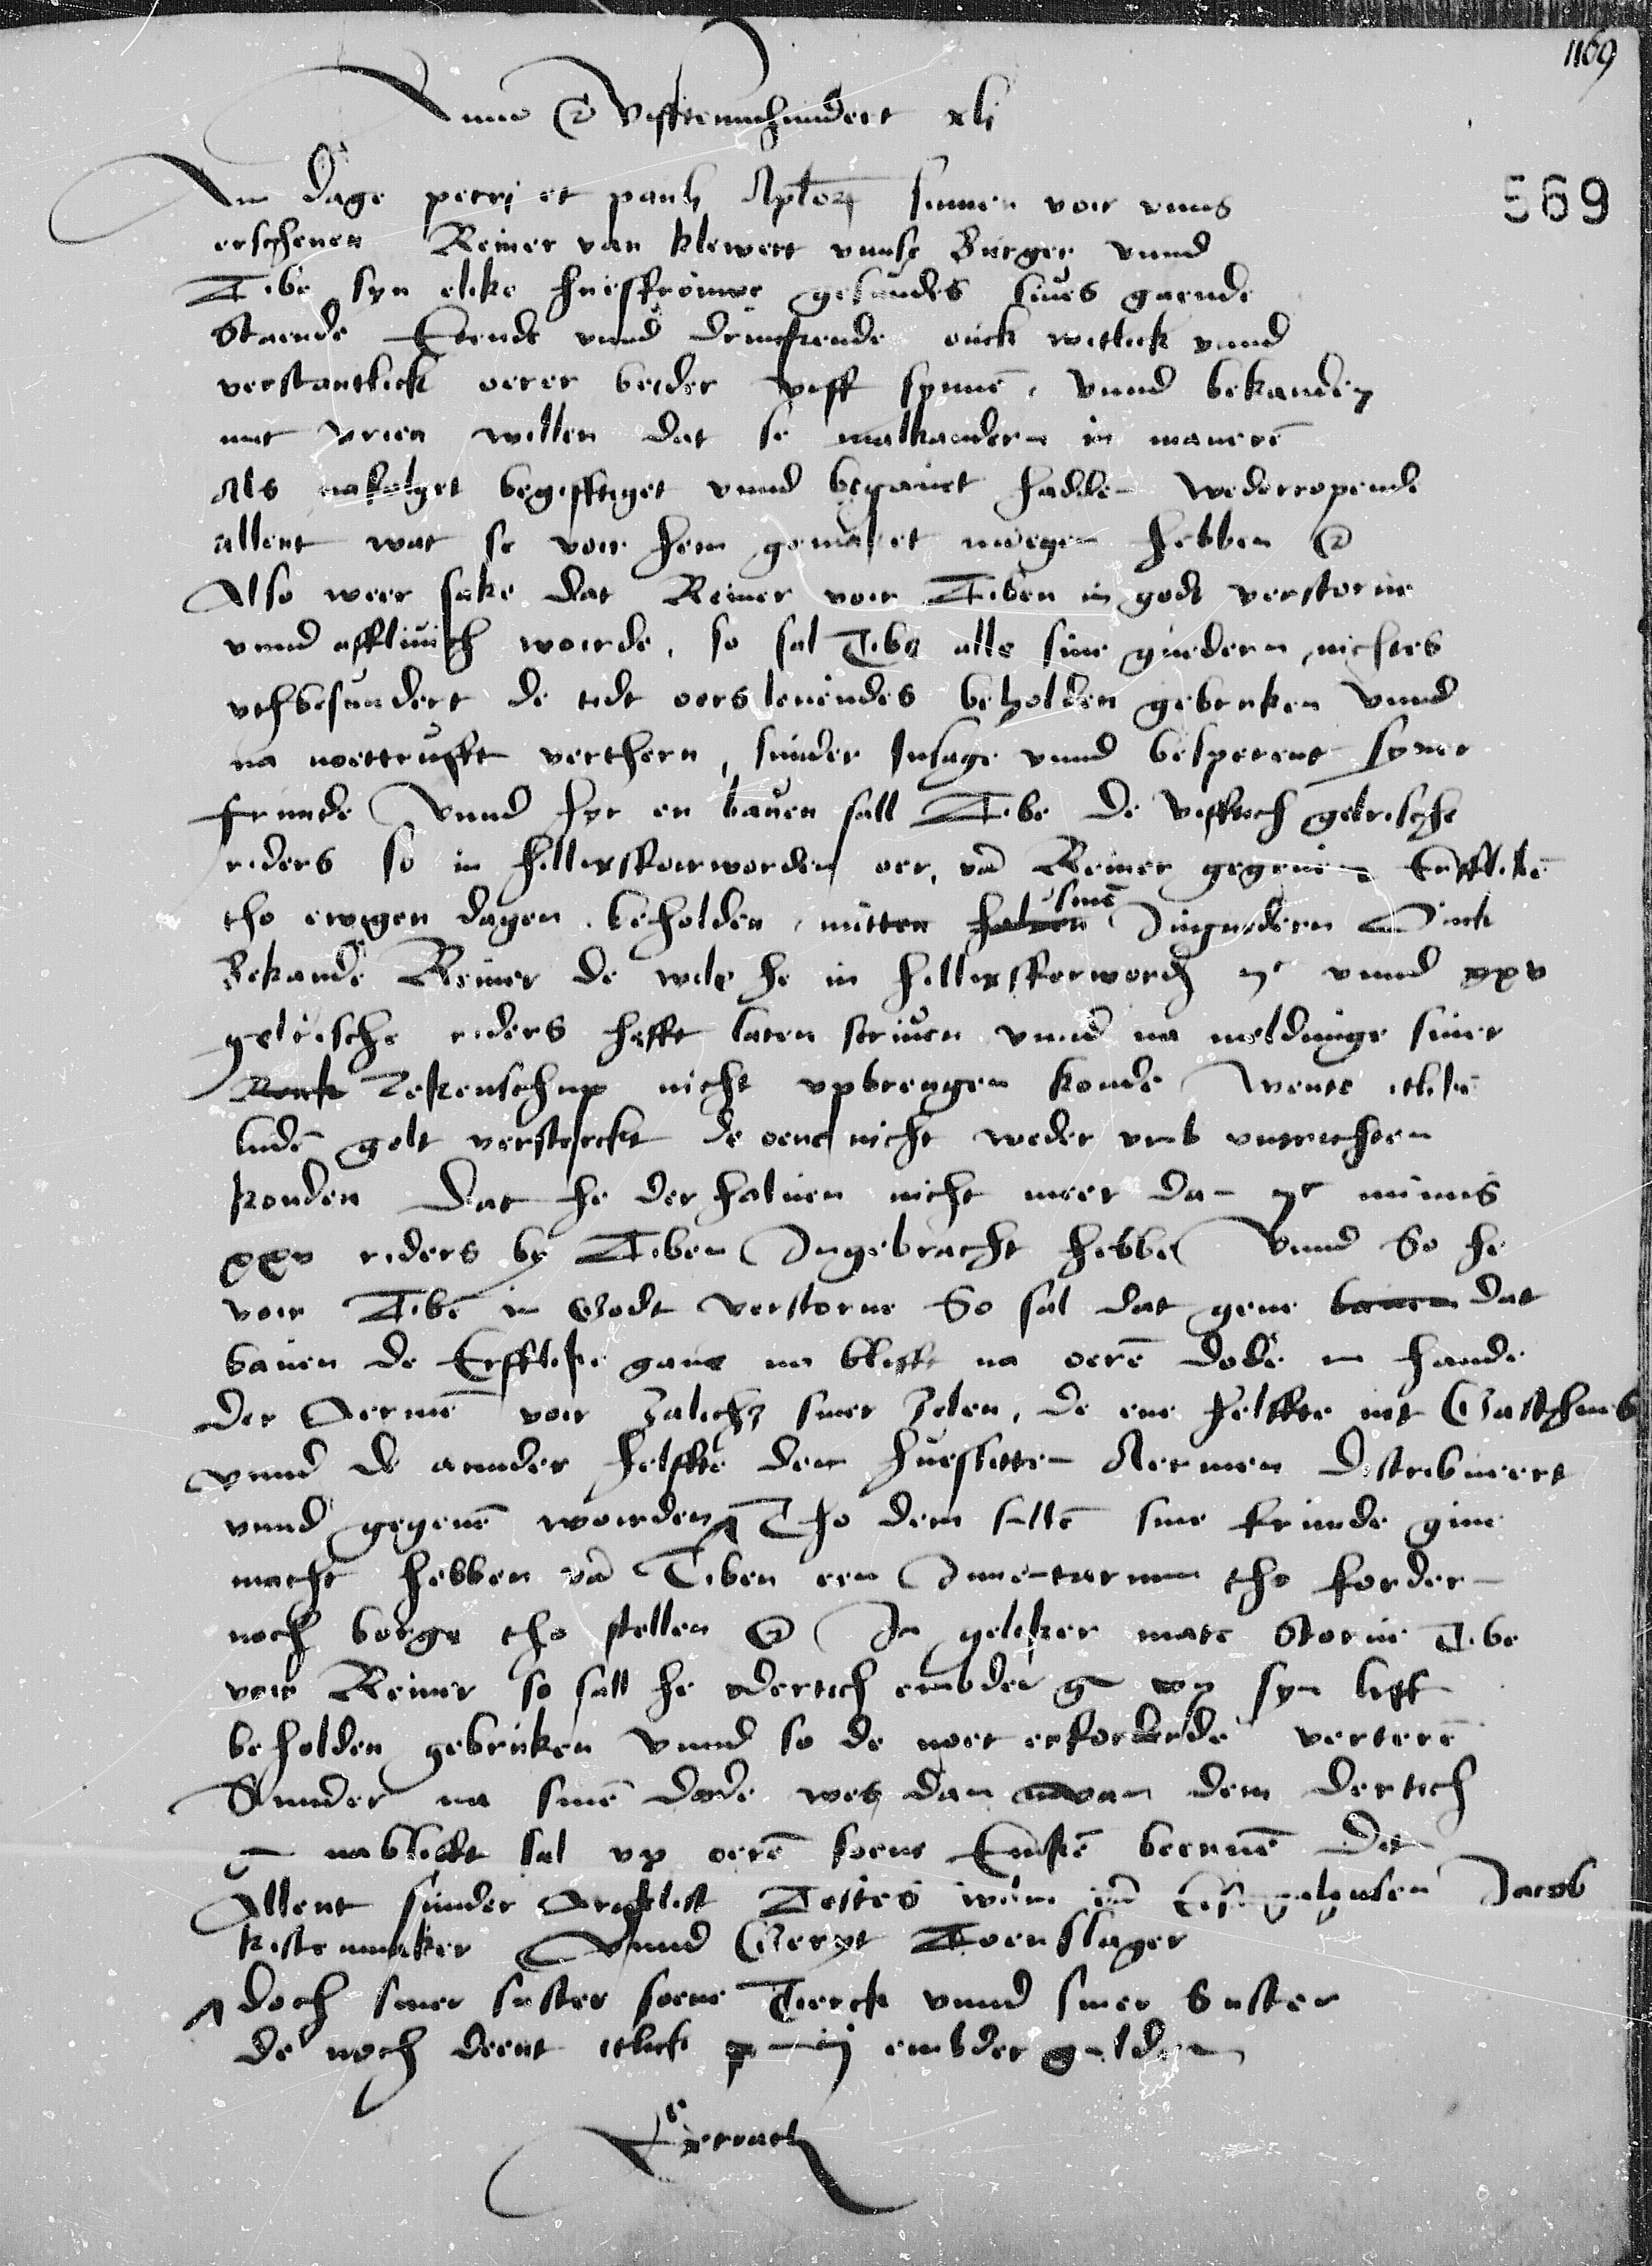 1169
Anno @ Vifftennhundert xli
569
Am dage petri et pauli Aplor sinnen voir vnns
erschenen Reiner van klewert vnnse Burger vnnd
Tibe syn elike huisfrouwe gesundes liues gaende
Staende Etende vnnd drinckende ouck witlick vnnd
verstantlick oerer beider viff synne, vnnd bekanden
mit vrien willen dat se malkandern in manere
Als nafolget begifftiget vnnd begauet hadden wederropende
allent wat se voir hem gemaket moegen hebben @
Also weer sake dat Reiner voir Tiben in godt verstorue
vnnd afflivich woirde, so sal Tibe alle sine guedern nichtes
vthbesundert de tidt oers leuendes beholden gebruken vnnd
na nottrufft verthern, sunder Insage vnnd besperent syner
frunde Vnnd hyr en bauen sall Tibe de vifftich gelrische
riders so in hillixforworden oer, va Reiner gegeuen Erfflike
tho ewigen dagen beholden mitten halven sine Ingudern Ouck
Bekande Reiner de wile he in hillixfforword jc vnnd xxv
gelrische riders hefft laten scriuen vnnd na meldunge siner
Rek Rekenschup nicht vpbrengen konde Wente itlike
lude gelt verstreckt de oene nicht weder vmb vntrichten
konden Dat he der haluen nicht meer dan jc minnus
xxv riders by Tiben Ingebracht hebbe Vnnd So he
voir Tibe in Godt verstorue So sal dat gene bauen dat
bauen de Erfflike gaue na blifft na oere dode in hande
der Aerme voir Zalich siner Zelen, de ene helffte int Gasthues
vnnd de annder helffte den huessitten Aermen distribueert
vnnd gegeue woirden ^ Tho dem sulle sine frunde gine
macht hebben va Tiben een Inuentarium tho fordern
noch borge tho stellen @ In geliker mate Storue Tibe
voir Reiner so sall he dertich embder g von syn lyff
beholden gebruken vnnd so de noet erforderde vertere
Sunder na sine dode wes dan van dem dertich
g nablifft sal vp oere soene beerue Dit
Allent sunder Argelist Testes wilm Jacob
kistenmaker Vnnd Geryt Toenslager
^ Doch siner suster soene Tierck vnnd siner Suster
de noch deent itlick embder gulden